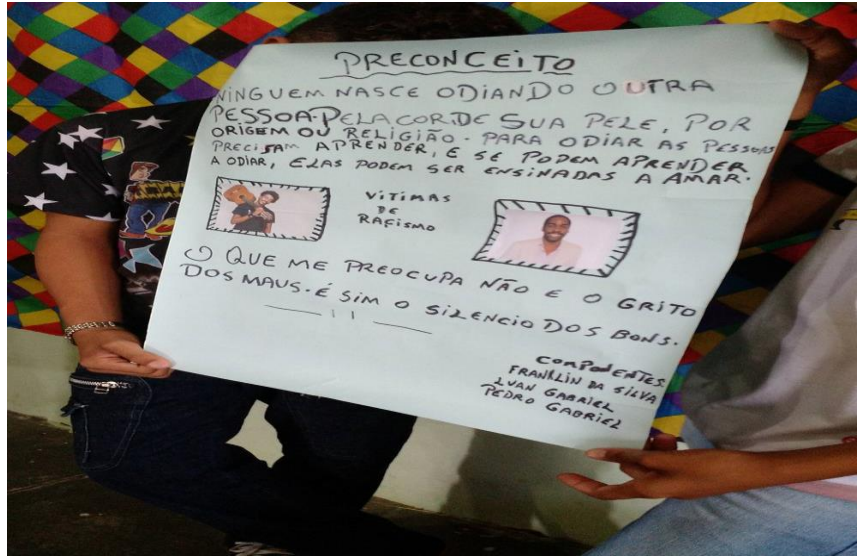 PRECONCEITO
NINGUEM NASCE ODIANDO OUTRA
PESSOA PELA COR DE SUA PELE, POR
ORIGEM OU RELIGIÃO. PARA ODIAR AS PESSOAS
PRECISAM APRENDER, E SE PODEM APRENDER
A ODIAR, ELAS PODEM SER ENSINADAS A AMAR.
VITIMAS
DE
RAFISMO
O QUE ME PREOCUPA NÃO E O GRITO
DOS MAUS. É SIM O SILENCIO DOS BONS.
COMPONENTES
FRANKLIN DA SILVA
LUAN GABRIEL
PEDRO GABRIEL